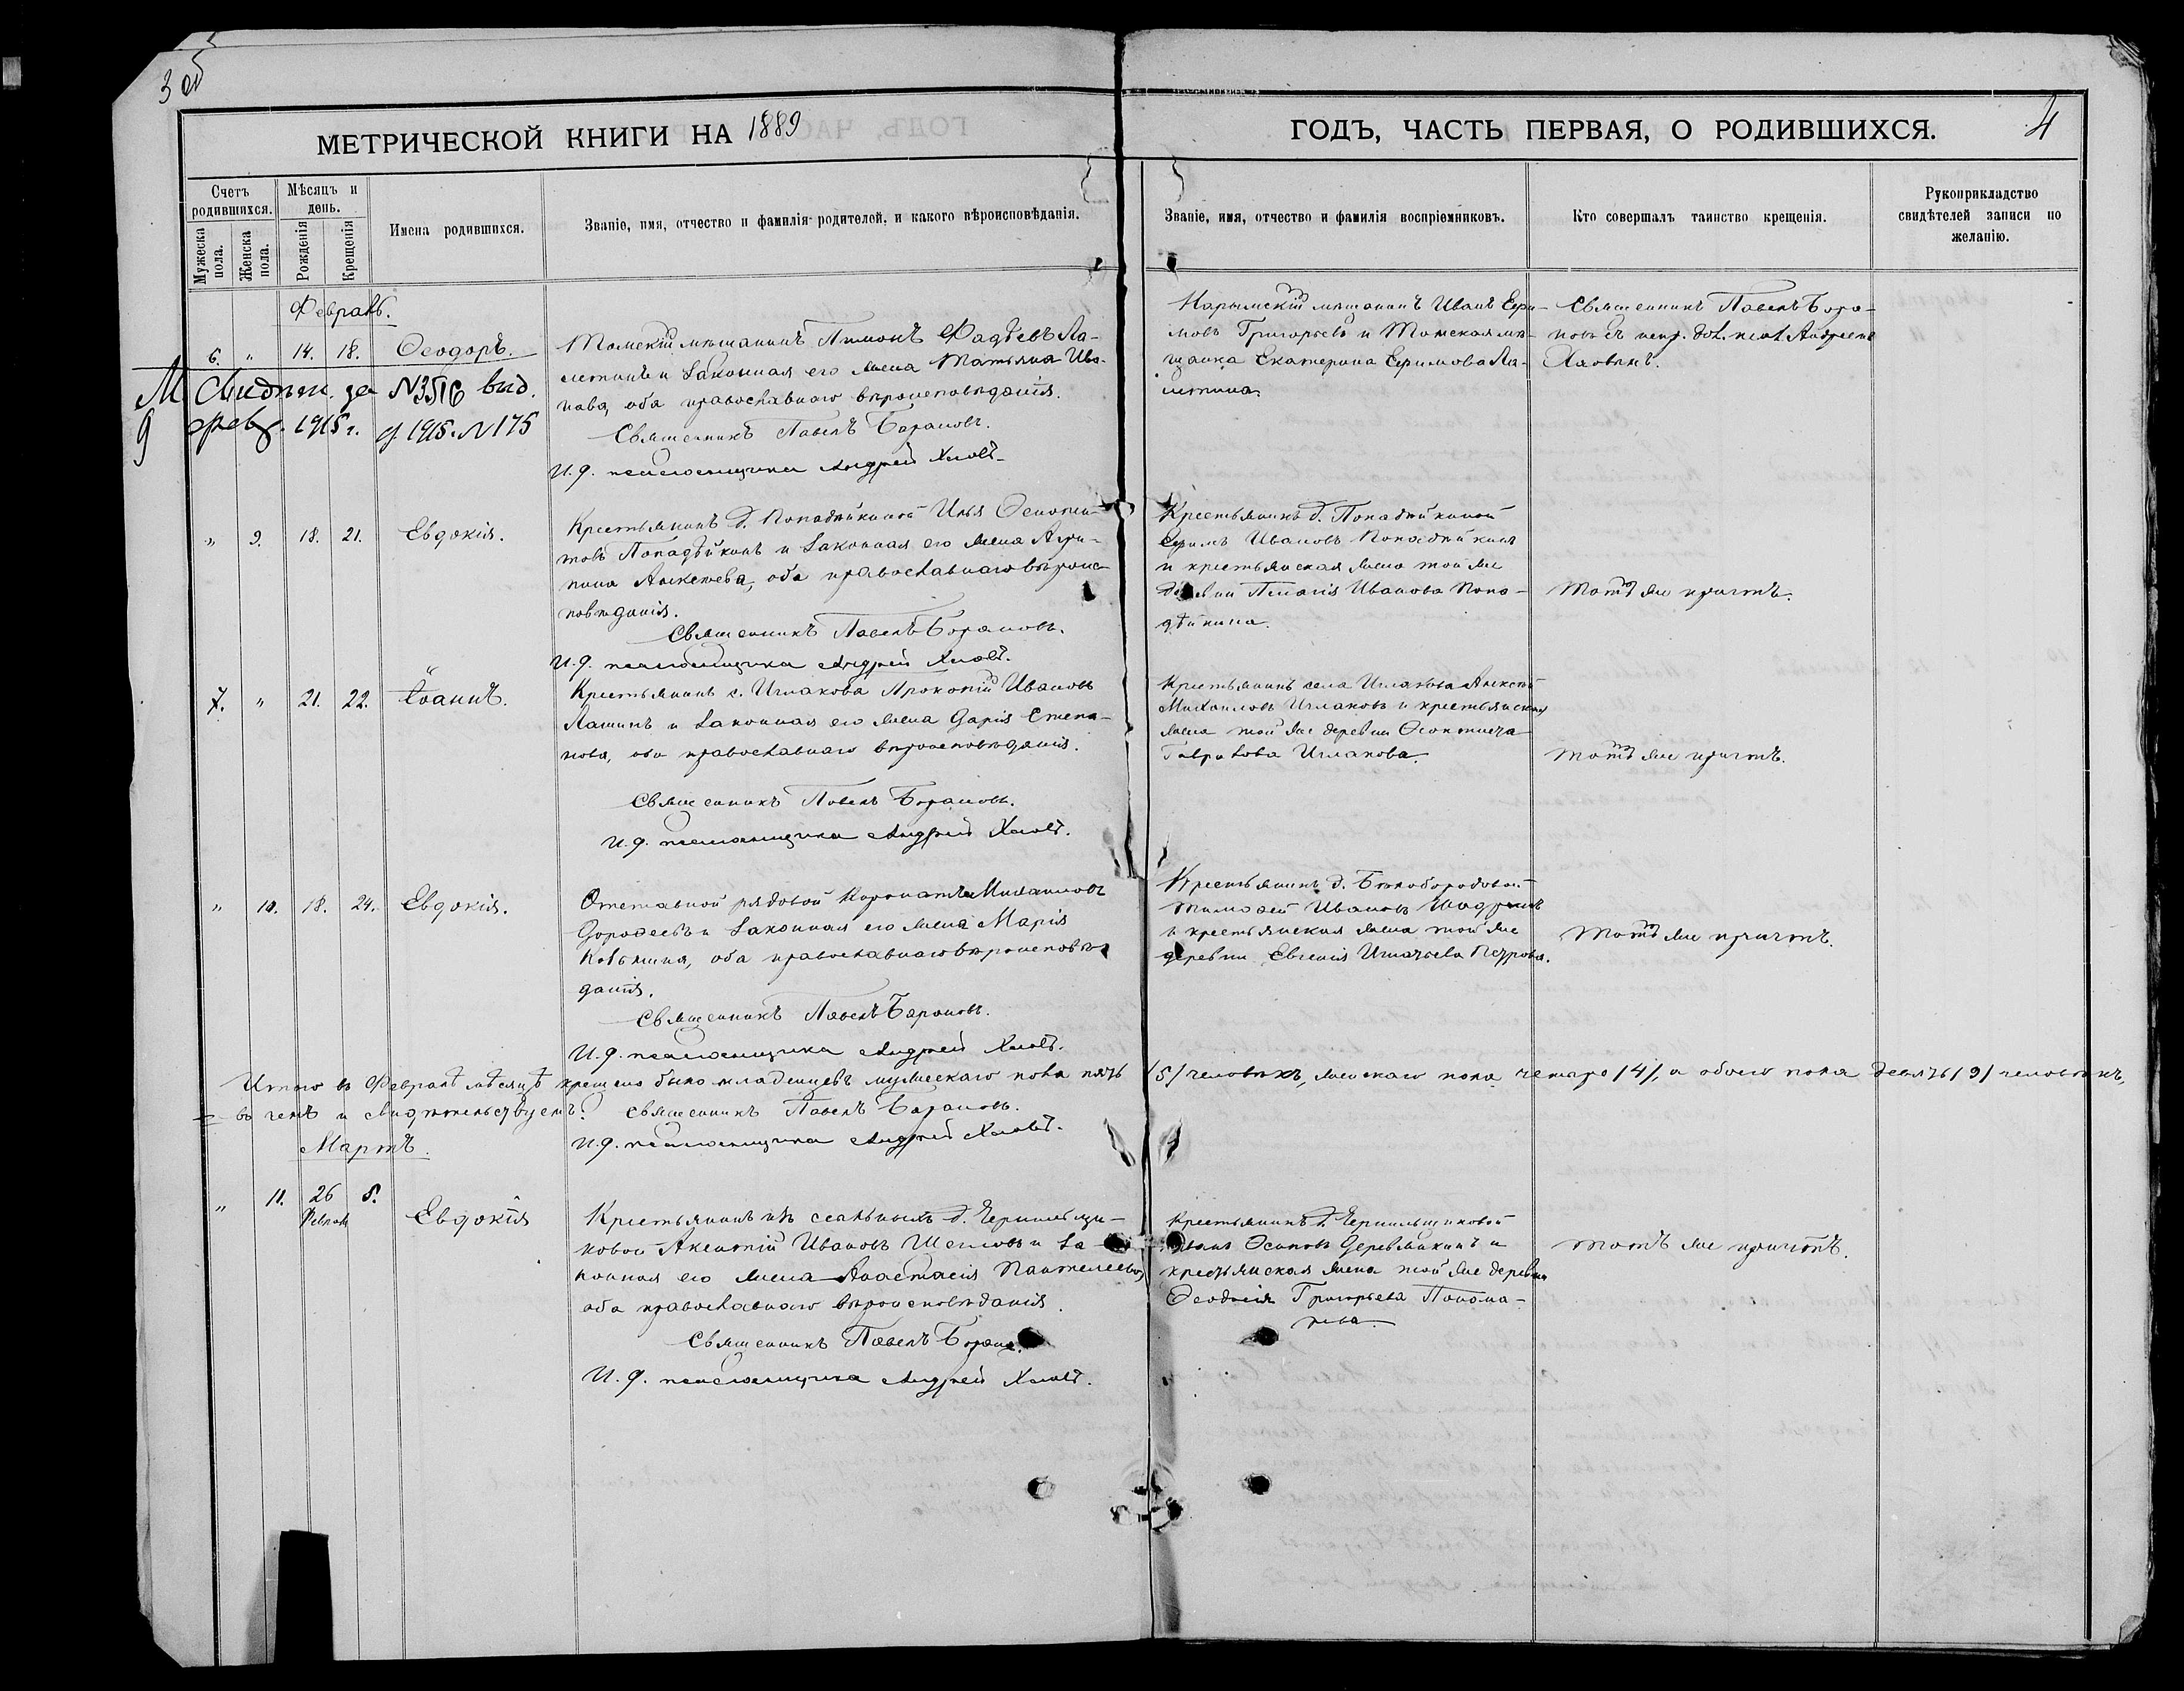 3 об
4
МЕТРИЧЕСКОЙ КНИГИ НА 1889
ГОДЪ, ЧАСТЬ ПЕРВАЯ, О РОДИВШИХСЯ.
Счетъ родившихся.
Мужеска пола.
Женска пола.
Мѣсяцъ и день.
Рожденія
Крещенія
Имена родившихся.
Званіе, имя, отчество и фамилія родителей, и какого вѣроисповѣданія.
Званіе, имя, отчество и фамилія воспріемниковъ.
Кто совершалъ таинство крещенія.
Рукоприкладство свидѣтелей записи по желанію.
Февраль.
6. " 14. 18. Ѳеодоръ.
М. Свидѣт. за №3516 выд.
9 февр. 1915 г. 1915 №175
Томскій мѣщанинъ Ѳадѣевъ Ла-
и законная его жена Татьяна Ива-
нова, оба православнаго вѣроисповѣданія.
Священникъ Павелъ Барановъ.
И.д. псаломщика Андрей Хловъ.
Нарымскій мѣщанинъ Иванъ Ефи-
мовъ Григорьевъ и Томская мѣ-
щанка Екатерина Ефимова Ла-
Священникъ Павелъ Бара-
новъ съ испр. дол. псал. Андреемъ
" 9. 18. 21. Евдокія.
Крестьянинъ д. Попадѣйкиной Илья
Попадѣйкинъ и законная его жена Агри-
пина Алексѣева, оба православнаго вѣроис-
повѣданія.
Священникъ Павелъ Барановъ.
И.д. псаломщика Андрей Хловъ.
Крестьянинъ д. Попадѣйкиной
Ефимъ Ивановъ Попадѣйкинъ
и крестьянская жена той же
деревни Пелагія Иванова Попа-
дѣйкина.
Тотъ же причтъ.
7. " 21. 22. Іоаннъ.
Крестьянинъ с. Иглакова Прокопій Ивановъ
Лашинъ и законная его жена Дарія Степа-
нова, оба православнаго вѣроисповѣданія.
Священникъ Павелъ Барановъ.
И.д. псаломщика Андрей Хловъ.
Крестьянинъ села Иглакова Алексѣй
Михаиловъ Иглаковъ и крестьянская
жена той же деревни Ѳеоктиста
Гаврилова Иглакова.
Тотъ же причтъ.
" 10. 18. 24. Евдокія.
Отставной рядовой Михаиловъ
Дороѳеевъ и законная его жена Марія
Козьмина, оба православнаго вѣроисповѣ-
данія.
Священникъ Павелъ Барановъ.
И.д. псаломщика Андрей Хловъ.
Крестьянинъ д. Бѣлобородовой
Тимоѳей Ивановъ Шадринъ
и крестьянская жена той же
деревни Евгенія Игнатьева Петрова.
Тотъ же причтъ.
Итого въ Февралѣ мѣсяцѣ крещено было младенцевъ мужескаго пола пять /5/ человѣкъ, женскаго пола четыре /4/, а обоего пола девять /9/ человѣкъ,
въ чемъ и свидѣтельствуемъ: Священникъ Павелъ Барановъ.
И.д. псаломщика Андрей Хловъ.
Мартъ.
" 11. 26 Февраля 5. Евдокія
Крестьянинъ изъ ссыльныхъ д. Чернильщи-
ковой Аксентій Ивановъ и за-
конная его жена Анастасія Пантелеева,
оба православнаго вѣроисповѣданія.
Священникъ Павелъ Баранов
И.д. псаломщика Андрей Хловъ.
Крестьянинъ д. Чернильщиковой
Иванъ Осиповъ Деревякинъ и
крестьянская жена той же деревни
Ѳеодосія Григорьева Понома-
рева.
Тотъ же причтъ.